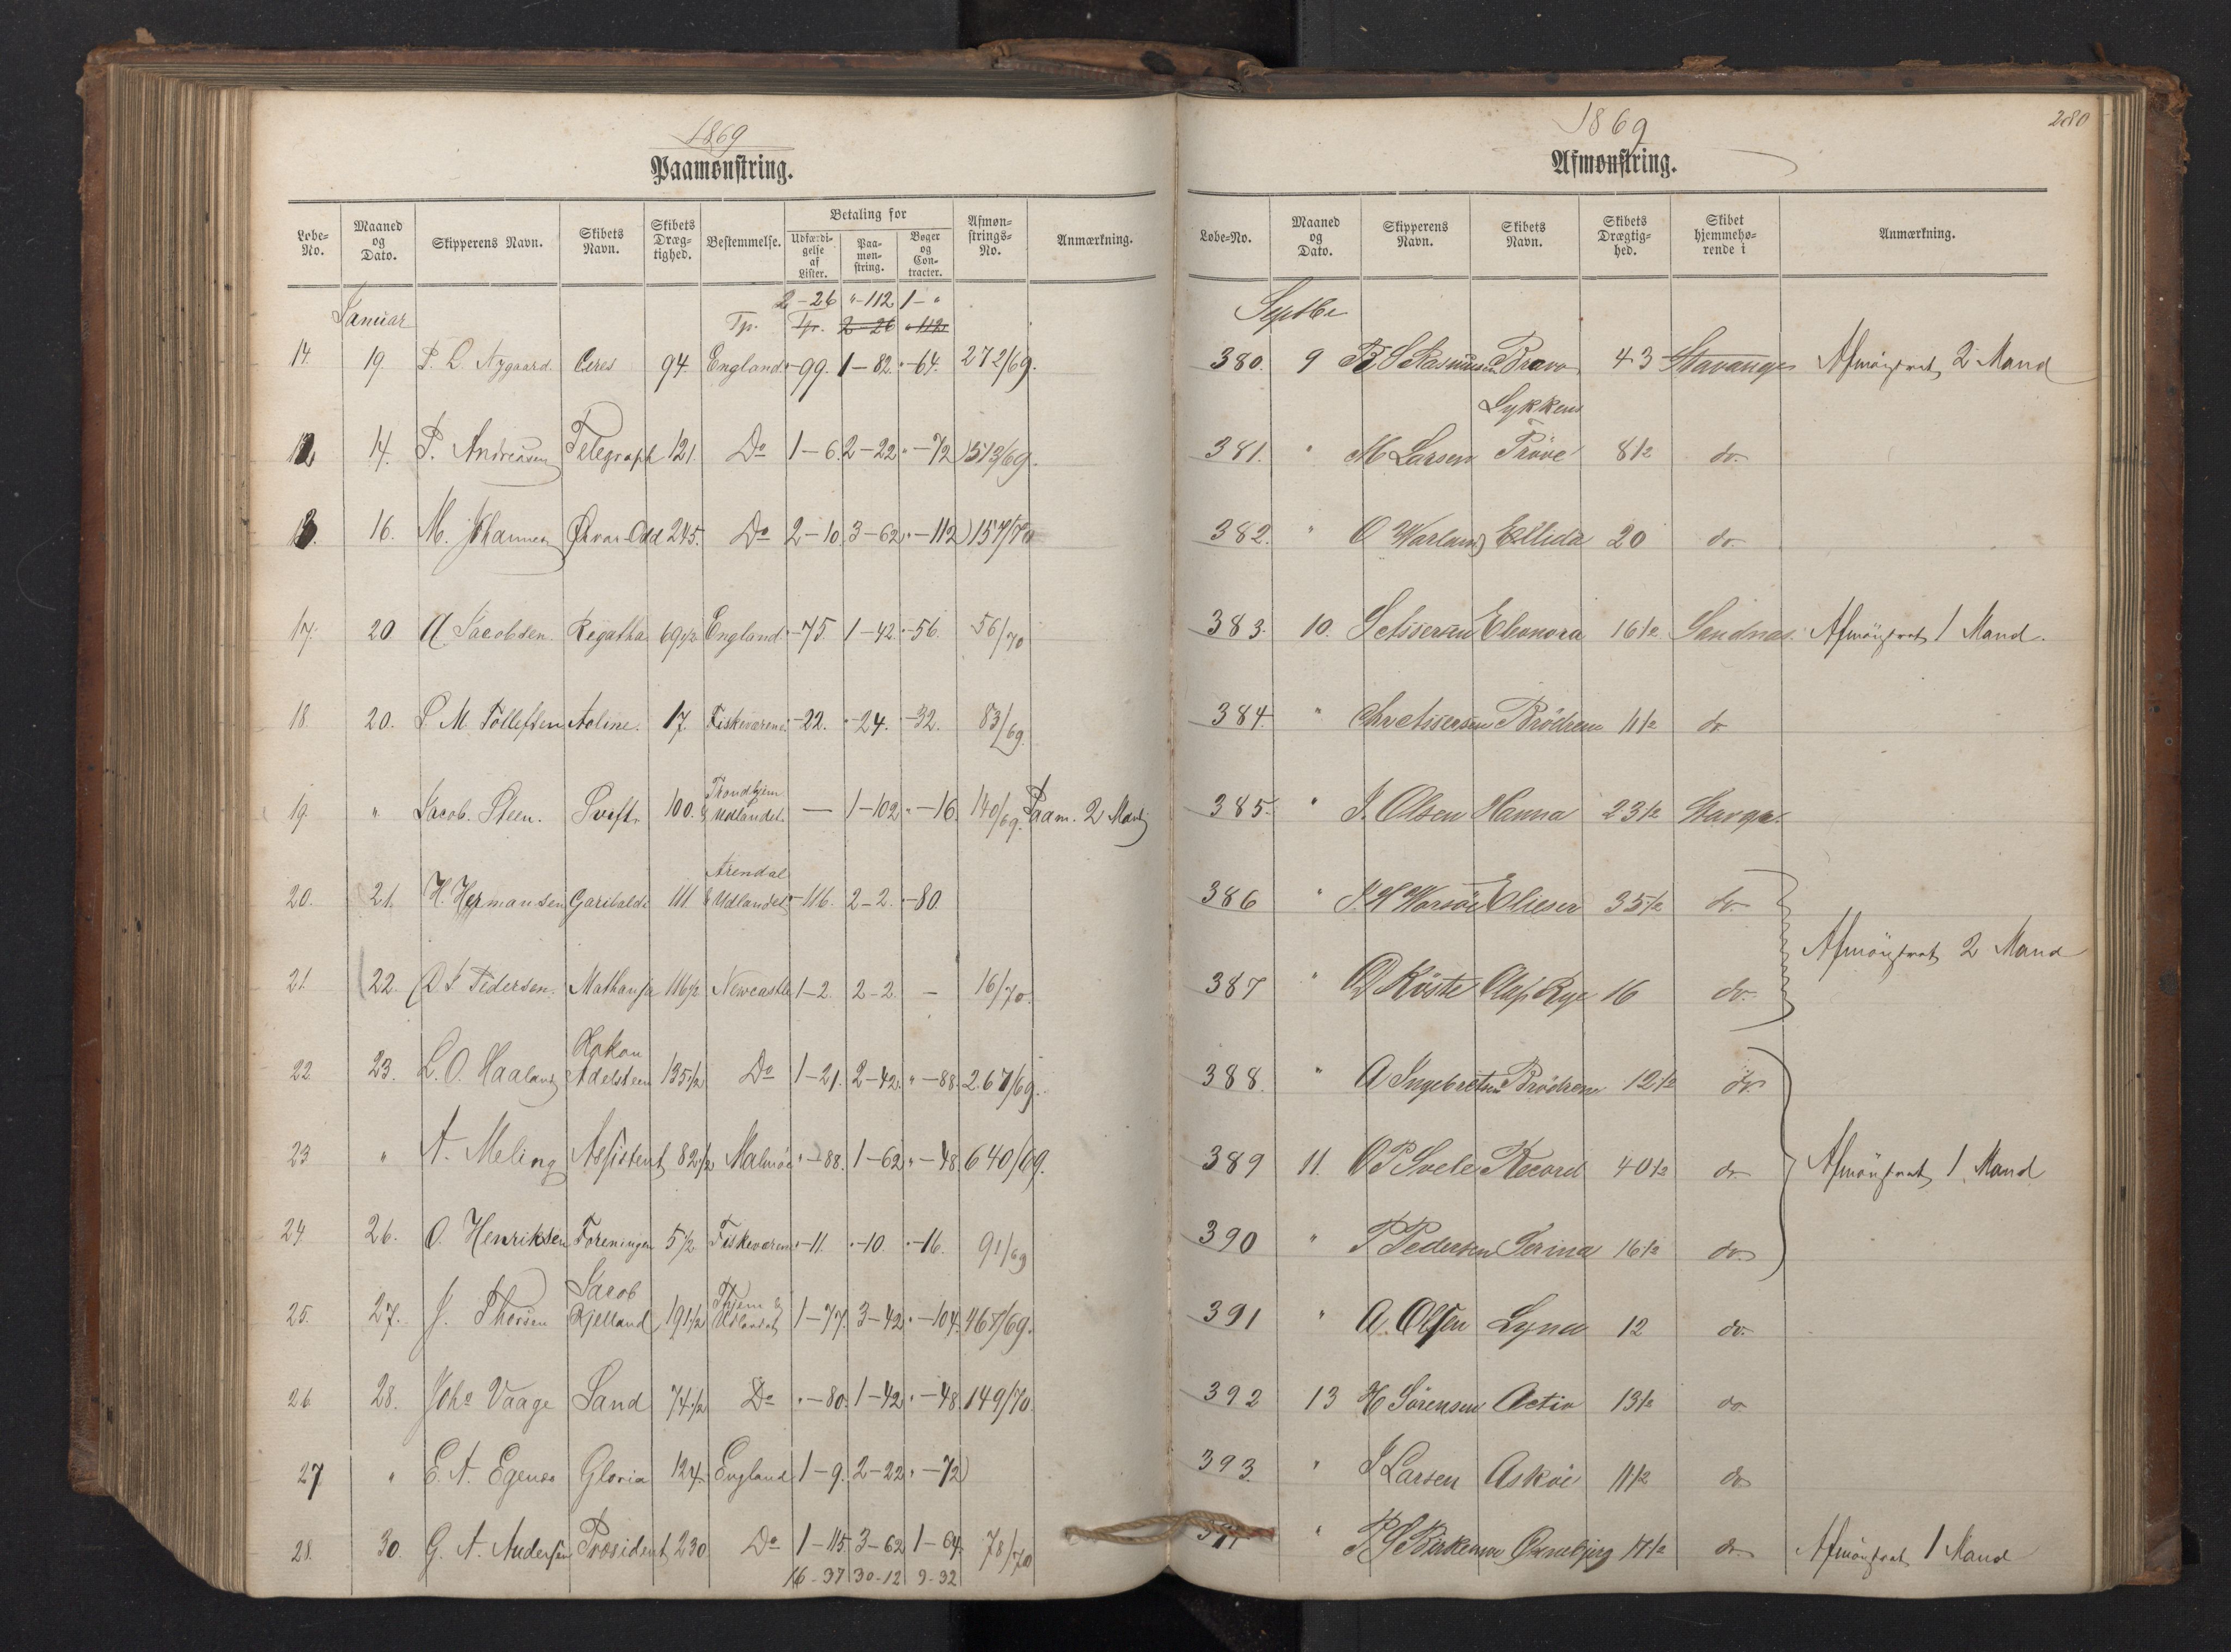 1869
Paamønstring.
Løbe-No. Maaned og Dato. Skipperens Navn. Skibets Navn. Skibets Dræg-tighed. Bestemmelse. Betaling for Udfærdi-gelse af Lister. Paa-møn-string. Bøger og Con-tracter. Afmøn-strings-No. Anmærkning.
2-26 "-112 1-"
Januar Tp. Tp. 2-26 "-112
14 19. P. L. Nygaard. Ceres 94. England "-99. 1-82. "-64. 272/69.
12 14. P. Andreasen Telegraph 121. Do 1-6. 2-22 "-72 513/69.
13. 16. M. Johannes Ørvar Odd 245. Do 2-10. 3-62 "-112 157/70
17. 20 A. Jacobsen. Regatha 69 1/2 England "-75. 1-42. "-56. 56/70
18 20. L. M. Tollefsen Aoline. 17. Fiskevarene. "-22. "-24. "-32. 83/69.
19. " Jacob. Steen. Svift. 100. Trondhjem & Udlandet. — 1-102 "-16. 140/69. Paam. 2 Mand
20. 21. H. Hermansen Garibaldi 111 Arendal & Udlandet "-116. 2-2. "-80.
21. 22. O. S. Pedersen. Mathauja 116 1/2 Newcastle 1-2. 2-2. — 16/70.
22 23. L. O. Haaland Hakon Adelsteen 135 1/2 Do 1-21. 2-42. "-88. 267/69.
23 " A. Meling Assistent 82 1/2 Malmöe "-88. 1-62 "-48. 640/69.
24. 26. O. Henriksen Foreningen 5 1/2 Fiskevarene "-11. "-10. "-16. 91/69
25. 27. J. Thorsen Jacob Kjelland 191 1/2 Thjem & Udlandet 1-77. 3-42 "-104. 467/69.
26 28. Johs Vaage Sand 74 1/2 Do "-80. 1-42 "-48. 149/70.
27 " E. A. Egenes Gloria 124. England 1-9. 2-22 "-72
28. 30. G. A. Andersen Præsident 230 Do 1-115. 3-62 1-64. 78/70
16-37 30-12 9-32
1869
280
Afmønstring.
Løbe-No. Maaned og Dato. Skipperens Navn. Skibets Navn. Skibets Drægtig-hed. Skibet hjemmehø-rende i Anmærkning.
Septbe
380. 9 B S Rasmussen Bravo 43 Stavanger Afmönstret 2 Mand
381. " M Larsen Lykkens Pröve 8 1/2 do.
382. " O Warland Ellida 20 do.
383. 10. S Eleonora 16 1/2 Sandnæs. Afmönstret 1 Mand.
384. " Brödrene 11 1/2 do
385. " J. Olsen Hanna 23 1/2 Stavgr.
386 " J H Warsöe Elieser 35 1/2 do.
Afmönstret 2 Mand
387 " O Köste Olaf Rye 16 do.
388. " A Ingebretsen Brödrene 12 1/2 do
389 11. O P Svele Record 40 1/2 do Afmönstret 1 Mand
390 " P Pedersen Serina 16 1/2 do
391 " A. Olsen Lyna 12 do.
392 13 H Sörensen Activ 13 1/2 do
393. " J Larsen Asköe 11 1/2 do
" 17 1/2 do Afmönstret 1 Mand